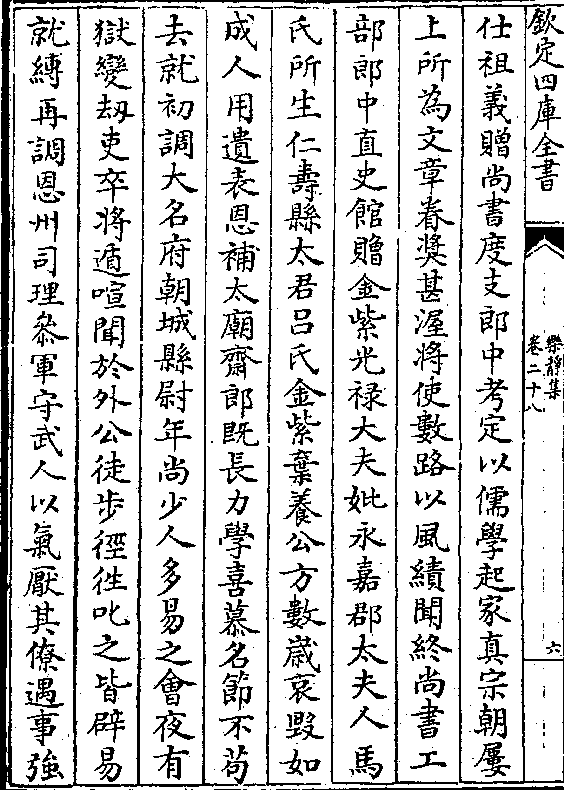 欽定四庫全書
樂靜集
卷二十八
六
仕祖義贈尚書度支郎中考定以儒學起家真宗朝屢
上所為文章眷奬甚渥將使數路以風績聞終尚書工
部郎中直史館贈金紫光禄大夫妣永嘉郡太夫人馬
氏所生仁夀縣太君吕氏金紫棄養公方數歲哀毁如
成人用遺表恩補太廟齋郎既長力學喜慕名節不茍
去就初調大名府朝城縣尉年尚少人多易之會夜有
獄變刼吏卒將遁喧聞於外公徒步徑往叱之皆辟易
就縛再調恩州司理叅軍守武人以氣厭其僚遇事強